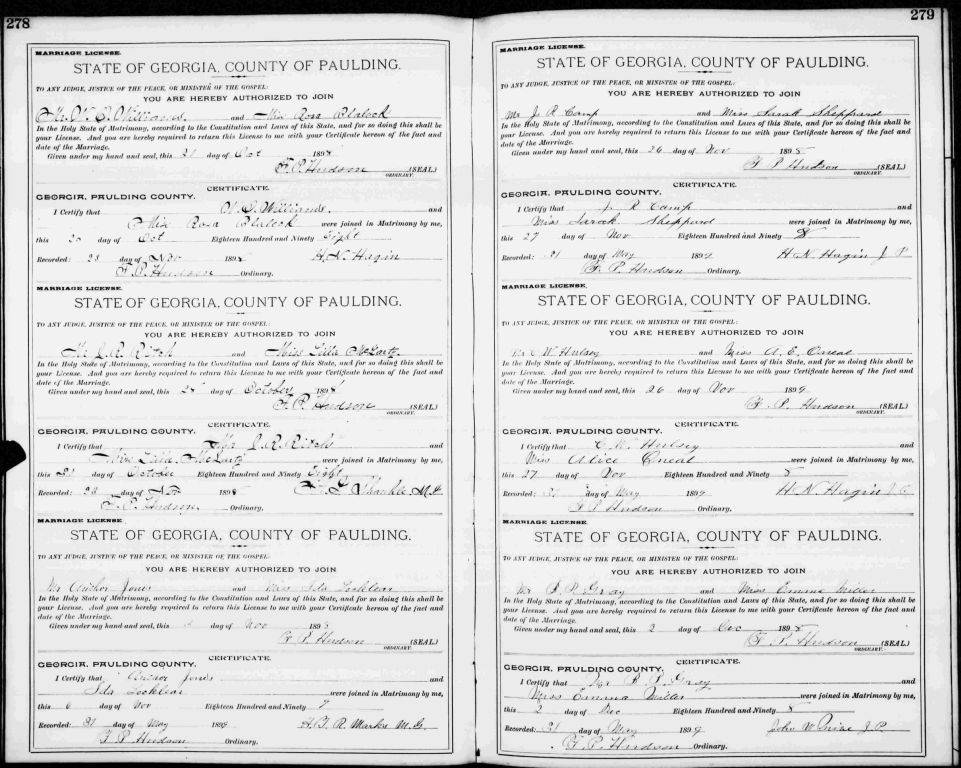 278
MARRIAGE LICENSE.
STATE OF GEORGIA, COUNTY OF PAULDING.
TO ANY JUDGE, JUSTICE OF THE PEACE, OR MINISTER OF THE GOSPEL:
YOU ARE HEREBY AUTHORIZED TO JOIN
Williams and Miss Rosa Blalock
In the Holy State of Matrimony, according to the Constitution and Laws of this State, and for so doing this shall be
your License. And you are hereby required to return this License to me with your Certificate hereon of the fact and
date of the Marriage.
Given under my hand and seal, this day of Oct 1898
F. P. Hudson (SEAL)
ORDINARY.
CERTIFICATE.
GEORGIA, PAULDING COUNTY.
I Certify that Williams and
Miss Rosa Blalock were joined in Matrimony by me,
this 20 day of Oct Eighteen Hundred and Ninety Eight
Recorded: 23 day of Nov 1898 H. N. Hagin
F. P. Hudson Ordinary.
MARRIAGE LICENSE.
STATE OF GEORGIA, COUNTY OF PAULDING.
TO ANY JUDGE, JUSTICE OF THE PEACE, OR MINISTER OF THE GOSPEL:
YOU ARE HEREBY AUTHORIZED TO JOIN
Mr J. R. Ritch and Miss Lilla McLarty
In the Holy State of Matrimony, according to the Constitution and Laws of this State, and for so doing this shall be
your License. And you are hereby required to return this License to me with your Certificate hereon of the fact and
date of the Marriage.
Given under my hand and seal, this day of October 1898
F. P. Hudson (SEAL)
ORDINARY.
CERTIFICATE.
GEORGIA, PAULDING COUNTY.
I Certify that Mr J. R. Ritch and
Miss Lilla McLarty were joined in Matrimony by me,
this day of October Eighteen Hundred and Ninety Eight
Recorded: 23 day of Nov 1898
F. P. Hudson, Ordinary.
MARRIAGE LICENSE.
STATE OF GEORGIA, COUNTY OF PAULDING.
TO ANY JUDGE, JUSTICE OF THE PEACE, OR MINISTER OF THE GOSPEL:
YOU ARE HEREBY AUTHORIZED TO JOIN
Mr Jones and Miss Ida Locklear
In the Holy State of Matrimony, according to the Constitution and Laws of this State, and for so doing this shall be
your License. And you are hereby required to return this License to me with your Certificate hereon of the fact and
date of the Marriage.
Given under my hand and seal, this day of Nov 1898
F P Hudson (SEAL)
ORDINARY.
CERTIFICATE.
GEORGIA, PAULDING COUNTY.
I Certify that Jones and
Ida Locklear were joined in Matrimony by me,
this 6 day of Nov Eighteen Hundred and Ninety
Recorded: 31 day of May 1899 Marks M. G.
F P Hudson Ordinary.
279
MARRIAGE LICENSE.
STATE OF GEORGIA, COUNTY OF PAULDING.
TO ANY JUDGE, JUSTICE OF THE PEACE, OR MINISTER OF THE GOSPEL:
YOU ARE HEREBY AUTHORIZED TO JOIN
Mr J. R Camp and Miss Sarah Sheppard
In the Holy State of Matrimony, according to the Constitution and Laws of this State, and for so doing this shall be
your License. And you are hereby required to return this License to me with your Certificate hereon of the fact and
date of the Marriage.
Given under my hand and seal, this 26 day of Nov 1898
F P Hudson (SEAL)
ORDINARY.
CERTIFICATE.
GEORGIA, PAULDING COUNTY.
I Certify that J R Camp and
Miss Sarah Sheppard were joined in Matrimony by me,
this 27 day of Nov Eighteen Hundred and Ninety 8
Recorded: 31 day of May 1899 H. N. Hagin J P
F. P. Hudson Ordinary.
MARRIAGE LICENSE.
STATE OF GEORGIA, COUNTY OF PAULDING.
TO ANY JUDGE, JUSTICE OF THE PEACE, OR MINISTER OF THE GOSPEL:
YOU ARE HEREBY AUTHORIZED TO JOIN
W Hulsey and Miss A. E. Oneal
In the Holy State of Matrimony, according to the Constitution and Laws of this State, and for so doing this shall be
your License. And you are hereby required to return this License to me with your Certificate hereon of the fact and
date of the Marriage.
Given under my hand and seal, this 26 day of Nov 189
F. P. Hudson (SEAL)
ORDINARY.
CERTIFICATE.
GEORGIA, PAULDING COUNTY.
I Certify that C. W. Hulsey and
Miss Alice Oneal were joined in Matrimony by me,
this 27 day of Nov Eighteen Hundred and Ninety 8
Recorded: day of May 1899 H. N Hagin
F P Hudson Ordinary.
MARRIAGE LICENSE.
STATE OF GEORGIA, COUNTY OF PAULDING.
TO ANY JUDGE, JUSTICE OF THE PEACE, OR MINISTER OF THE GOSPEL:
YOU ARE HEREBY AUTHORIZED TO JOIN
Mr P. Gray and Miss Emma
In the Holy State of Matrimony, according to the Constitution and Laws of this State, and for so doing this shall be
your License. And you are hereby required to return this License to me with your Certificate hereon of the fact and
date of the Marriage.
Given under my hand and seal, this 2 day of Dec 1898
F. P. Hudson (SEAL)
ORDINARY.
CERTIFICATE.
GEORGIA, PAULDING COUNTY.
I Certify that Mr P. Gray and
Miss Emma were joined in Matrimony by me,
this 2 day of Dec Eighteen Hundred and Ninety 8
Recorded: 31 day of May 1899 John W J. P.
F. P. Hudson Ordinary.